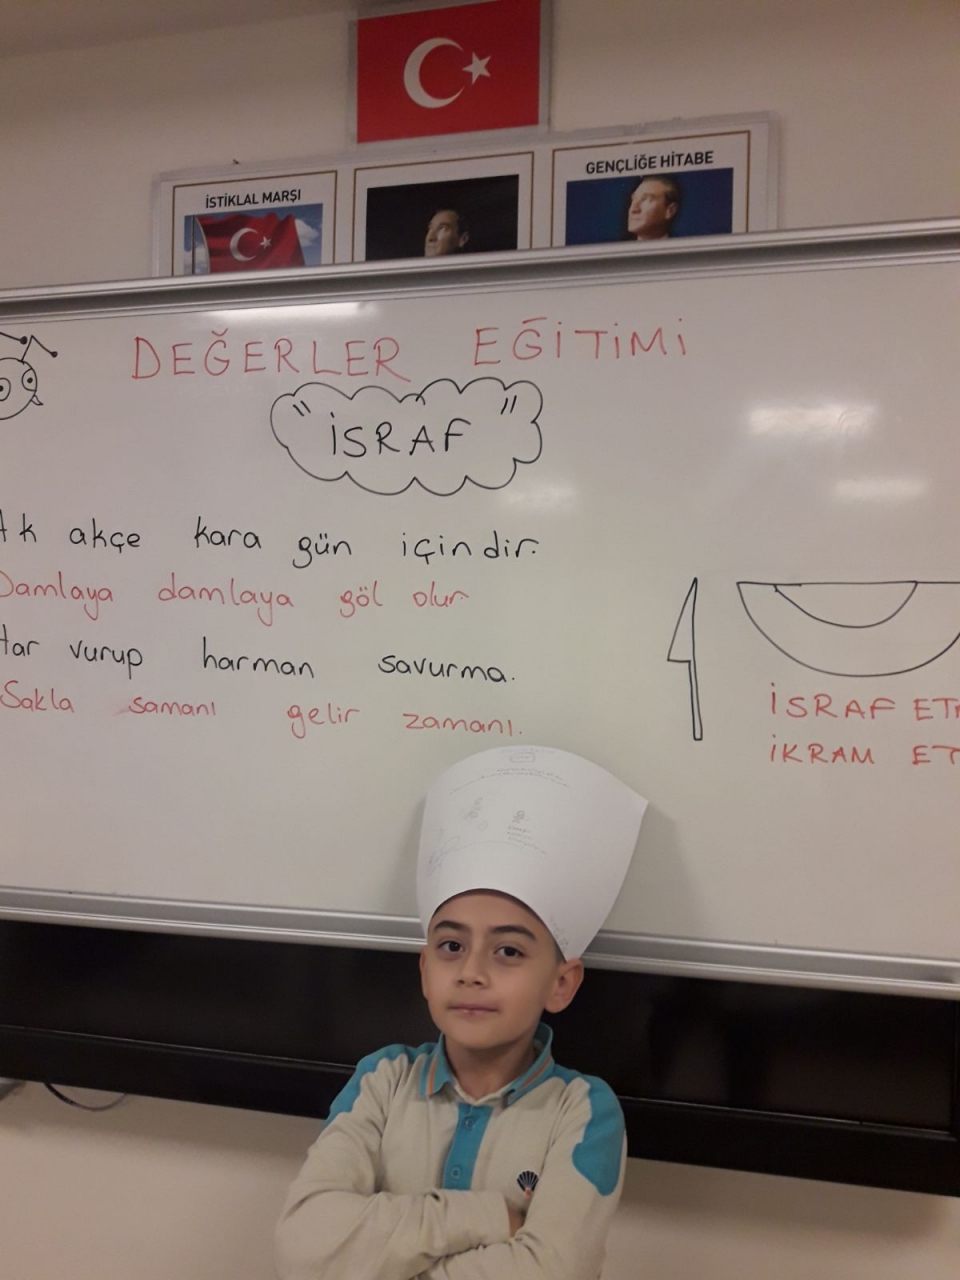 İSTİKLAL MARŞI
GENÇLİĞE HİTABE
DEĞERLER EĞİTİMİ
"İSRAF"
Ak akçe kara gün içindir.
Damlaya damlaya göl olur
Har vurup harman savurma.
Sakla samanı gelir zamanı.
İSRAF
İKRAM